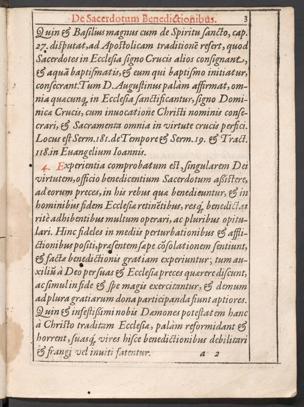 De Sacerdotum Benedictionibus. 3
Quin & Basilius magnus cum de Spiritu sancto, cap.
27. disputat, ad Apostolicam traditionē refert, quod
Sacerdotes in Ecclesia signo Crucis alios consignant,
& aquā baptismatis, & eum qui baptismo initiatur,
consecrant. Tum D. Augustinus palàm affirmat, om-
nia quæcunq, in Ecclesia sanctificantur, signo Domi-
nicæ Crucis, cum inuocatione Christi nominis conse-
crari, & Sacramenta omnia in virtute crucis perfici.
Locus est Serm. 181. de Tempore & Serm. 19. & Tract.
118. in Euangelium Ioannis.
4. Experientia comprobatum est, singularem Dei
virtutem, officio benedicentium Sacerdotum assistere,
ad eorum preces, in his rebus quæ benedicuntur, & in
hominibus fidem Ecclesiæ retinētibus, resq, benedictas
ritè adhibentibus multum operari, ac pluribus opitu-
lari. Hinc fideles in mediis perturbationibus & affli-
ctionibus positi, præsentem sæpe cōsolationem sentiunt,
& factæ benedictionis gratiam experiuntur; tum au-
xiliū à Deo per suas & Ecclesiæ preces quærere discunt,
ac simul in fide & spe magis exercitantur, & demum
ad plura gratiarum dona participanda fiunt aptiores.
Quin & infestissimi nobis Dæmones potestatem hanc
à Christo traditam Ecclesiæ, palàm reformidant &
horrent, suasq, vires hisce benedictionibus debilitari
& frangi vel inuiti fatentur. a 2